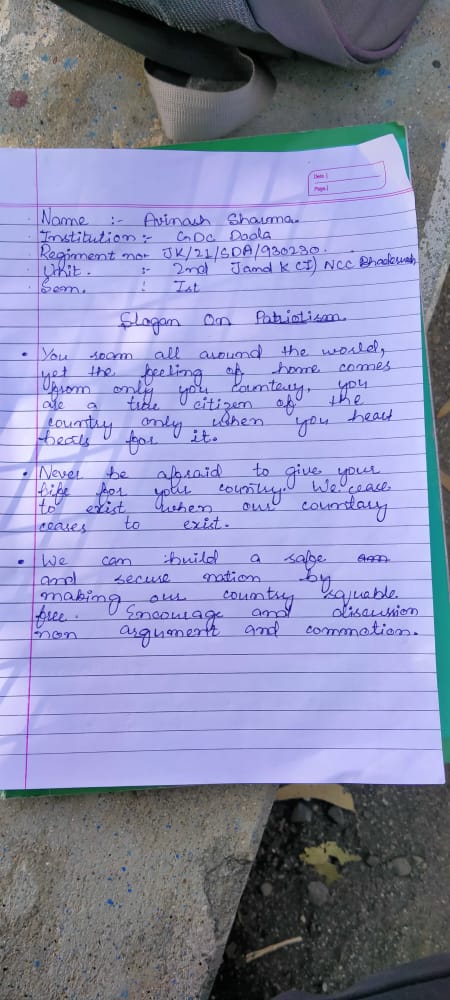 Date |
Page |
Name :- Avinash Sharma.
Institution :- GDC Doda
Regiment no:- JK/21/SDA/930230.
Unit. :- 2nd J and K (I) NCC Bhaderwah
Sem. : Ist
Slogan On Patriotism
• You roam all around the world,
yet the feeling of home comes
from only you country, you
are a true citizen of the
country only when you heart
beats for it.
• Never be afraid to give your
life for your country. We cease
to exist when our country
ceases to exist.
• We can build a safe
and secure nation by
making our country squable
free. Encourage and discussion
non argument and commotion.